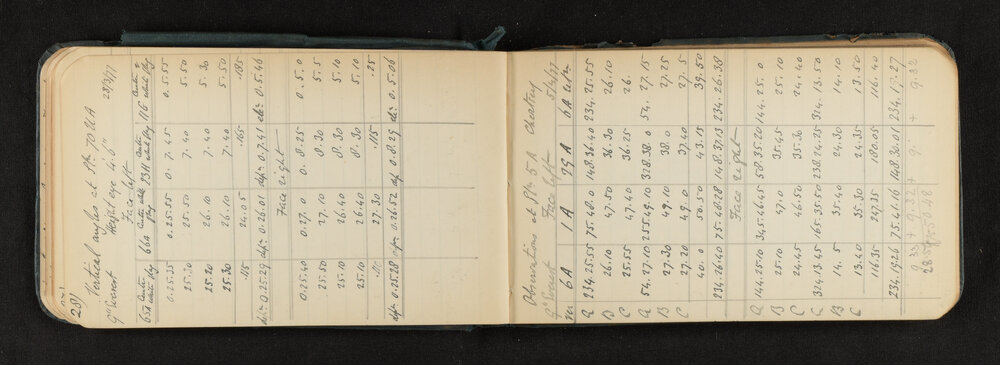 281
Vertical angles at Stn 70 U A
Gt Everest Height eye 4'.6" 28/3/77
Face left
65A Centre white flag 66A Centre white flag 13H Centre white flag 116 Centre white flag
0.25.35 0.25.55 0.7.45 0.5.55
25.20 25.50 7.40 5.50
25.20 26.10 7.40 5.30
25.30 26.10 7.40 5.50
.115 24.05 .165 .185
dep. 0.25.29 dep. 0.26.01 dep. 0.7.41 dep. 0.5.46
Face right
0.25.40 0.27.0 0.8.25 0.5.0
25.50 27.10 8.30 5.5
25.10 26.40 8.30 5.10
25.10 26.40 8.30 5.10
.110 27.30 .115 .25
dep. 0.25.28 dep. 0.26.52 dep. 0.8.29 dep. 0.5.06
Observations at Stn 5 A
Gt Everest Face left 5/4/77
m 6A 1 A 79 A 6A
A 234.25.55 75.48.0 148.36.40 234.25.55
B 26.10 47.50 36.30 26.10
C 25.55 47.40 36.25 26.
A 54.27.10 255.49.10 328.38.0 54.27.15
B 27.30 49.10 38.0 27.25
C 27.20 49.0 37.40 27.5
40.0 50.50 43.15 39.50
234.26.40 75.48.28 148.37.13 234.26.38
Face right
A 144.25.10 345.46.45 58.35.20 144.25.0
B 25.10 47.0 35.45 25.10
C 24.45 46.50 35.30 24.40
A 324.13.45 165.35.50 238.24.25 324.13.50
B 14.5 35.40 24.30 14.10
C 13.40 35.30 24.35 13.50
116.35 247.35 180.05 116.40
234.19.26 75.41.16 148.30.01 234.19.27
9.33 + 9.32 + 9. + 9.32